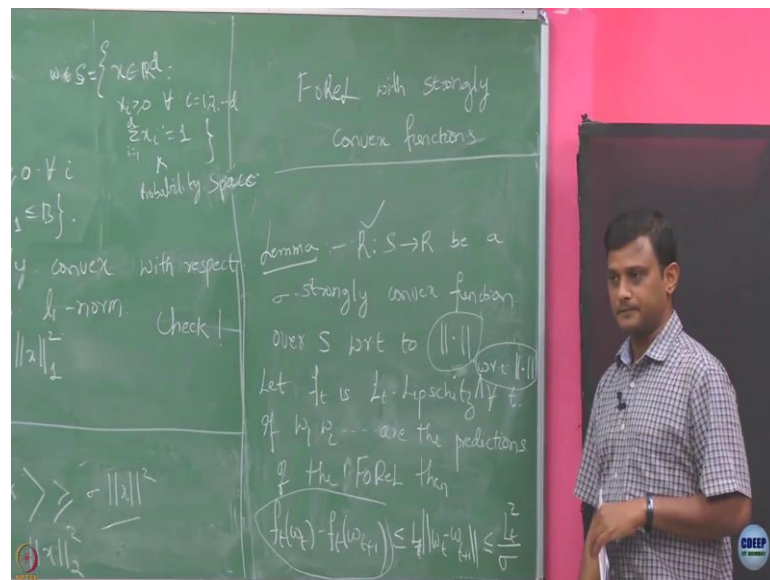 w ∈ S = { x ∈ ℝ^d :
x_i ≥ 0 ∀ i=1,2,..d
∑_{i=1}^{d} x_i = 1 }
Probability Space
≥ 0 ∀ i
‖_1 ≤ B}.
y convex with respect
l_1-norm. Check!
‖x‖_1^2
⟩ ≥ σ‖x‖^2
‖x‖_2^2
FoReL with strongly
convex functions
Lemma :- R: S→R be a
σ-strongly convex function
over S wrt to ‖·‖
wrt ‖·‖
Let f_t is L_t-Lipschitz ∀ t.
If w_1 w_2 --- are the predictions
of the FoReL then
f_t(w_t) - f_t(w_{t+1}) ≤ L_t‖w_t - w_{t+1}‖ ≤ L_t^2/σ
NPTEL
CDEEP
IIT BOMBAY